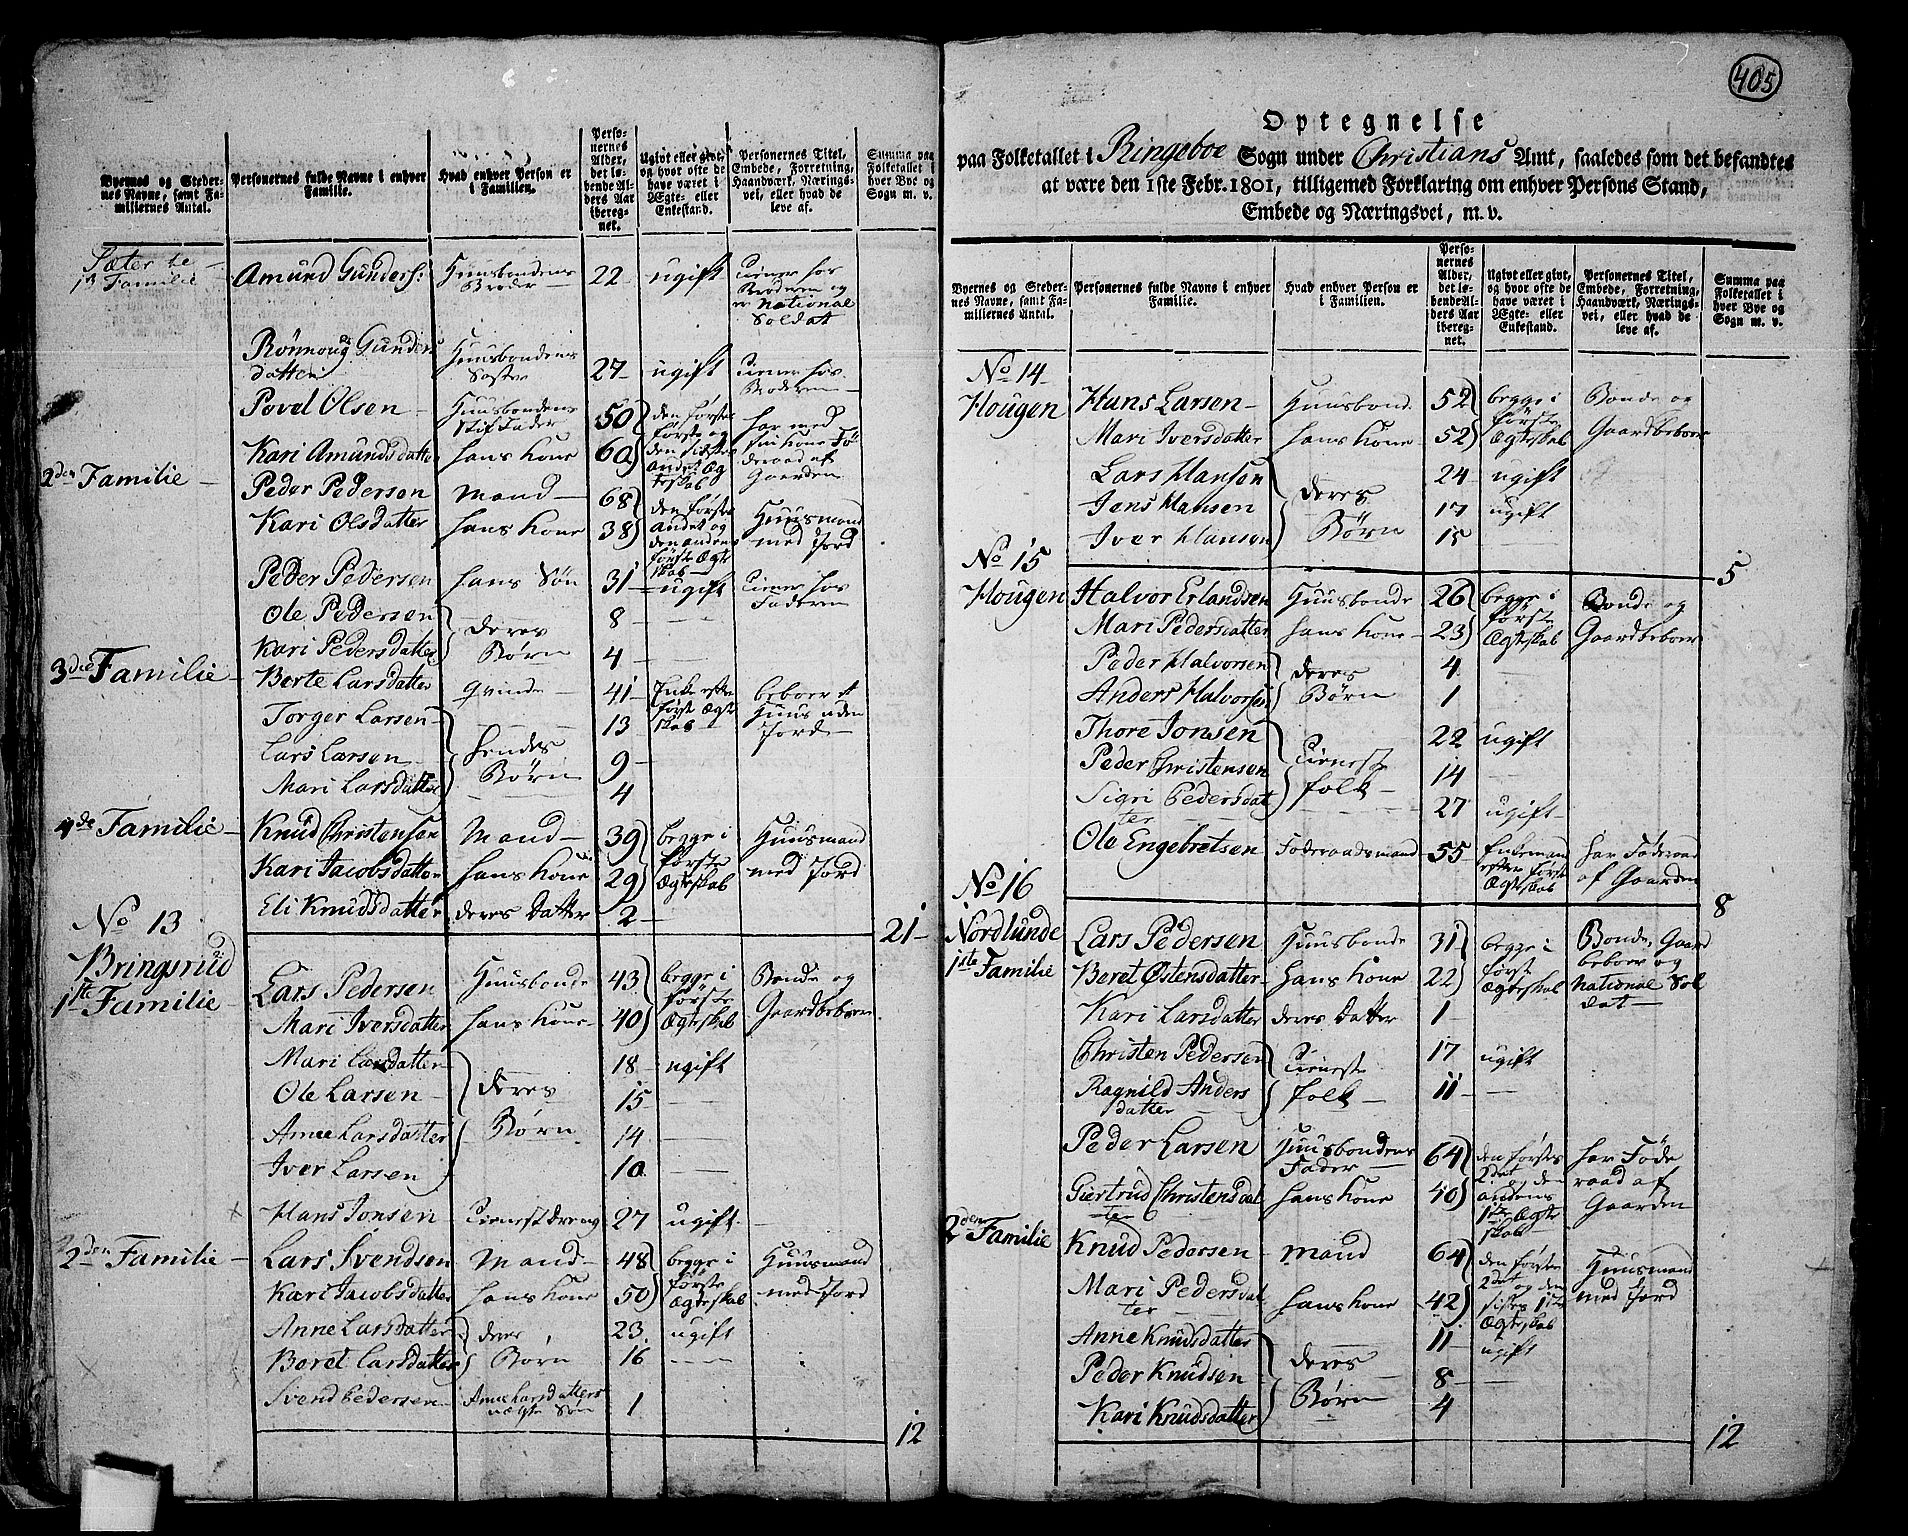 Byernes og Steder-
nes Navne, samt Fa-
miliernes Antal.
Personernes fulde Navne i enhver
Familie.
Hvad enhver Person er
i Familien.
Perso-
nernes
Alder,
det lø-
bende Al-
ders Aar
ibereg-
net.
Ugivt eller givt,
og hvor ofte de
have været i
Ægte- eller
Enkestand.
Personernes Titel,
Embede, Forretning,
Haandværk, Nærings-
vei, eller hvad de
leve af.
Summa paa
Folketallet i
hver Bye og
Sogn m. v.
1st Familie
Amund Gunders: Huusbondens Broder 22 ugift tiener hos Broderen og er national Soldat
Rønnoug Gunders datter Huusbondens Søster 27 ugift tiener hos Broderen
Povel Olsen Huusbondens Stiffader 50 den første første og den sidste andet Ægteskab har med sin Kone Föderaad af Gaarden
Kari Amundsdatter hans Kone 60
2den Familie
Peder Pedersen Mand 68 den første andet og den anden første Ægteskab Huusmand med Jord
Kari Olsdatter hans Kone 38
Peder Pedersen hans Søn 31 ugift tiener hos Faderen
Ole Pedersen deres Børn 8
Kari Pedersdatter 4
3die Familie
Berte Larsdatter Qvinde 41 Enke efter første Ægteskab beboer et Huus uden Jord
Torger Larsen hendes Børn 13
Lars Larsen 9
Mari Larsdatter 4
4de Familie
Knud Christensen Mand 39 begge i første Ægteskab Huusmand med Jord
Kari Jacobsdatter hans Kone 29
Eli Knudsdatter deres Datter 2
21
No 13
Bringsrud
1ste Familie
Lars Pedersen Huusbonde 43 begge i første Ægteskab Bonde og Gaardbeboer
Mari Iversdatter hans Kone 40
Mari Larsdatter deres Børn 18 ugift
Ole Larsen 15
Anne Larsdatter 14
Iver Larsen 10
Hans Jonsen Tienestdreng 27 ugift
2den Familie
Lars Svendsen Mand 48 begge i første Ægteskab Huusmand med Jord
Kari Jacobsdatter hans Kone 50
Anne Larsdatter deres Børn 23 ugift
Beret Larsdatter 16
Svend Pedersen Anne Larsdatters uægte Søn 1
12
405
Optegnelse
paa Folketallet i Ringeboe Sogn under Christians Amt, saaledes som det befandtes
at være den 1ste Febr. 1801, tilligemed Forklaring om enhver Persons Stand,
Embede og Næringsvei, m. v.
Byernes og Steder-
nes Navne, samt Fa-
miliernes Antal.
Personernes fulde Navne i enhver
Familie.
Hvad enhver Person er
i Familien.
Perso-
nernes
Alder,
det lø-
bende Al-
ders Aar
ibereg-
net.
Ugivt eller givt,
og hvor ofte de
have været i
Ægte- eller
Enkestand.
Personernes Titel,
Embede, Forretning,
Haandværk, Nærings-
vei, eller hvad de
leve af.
Summa paa
Folketallet i
hver Bye og
Sogn m. v.
No 14
Hougen
Hans Larsen Huusbond 52 begge i første Ægteskab Bonde og Gaardbeboer
Mari Iversdatter hans Kone 52
Lars Hansen deres Børn 24 ugift
Jens Hansen 17 ugift
Iver Hansen 15
5
No 15
Hougen
Halvor Erlandsen Huusbonde 26 begge i første Ægteskab Bonde og Gaardbeboer
Mari Pedersdatter hans Kone 23
Peder Halvorsen deres Børn 4
Anders Halvorsen 1
Thore Jonsen Tieneste folk 22 ugift
Peder Christensen 14
Sigri Pedersdatter 27 ugift
Ole Engebretsen Föderaadsmand 55 Enkemand efter første Ægteskab har Föderaad af Gaarden
8
No 16
Nordlunde
1ste Familie
Lars Pedersen Huusbonde 31 begge i første Ægteskab Bonde, Gaard beboer og National Soldat
Beret Østensdatter hans Kone 22
Kari Larsdatter deres Datter 1
Christen Pedersen Tieneste folk 17 ugift
Ragnild Anders datter 11
Peder Larsen Huusbondens Fader 64 den første 2det og den andens 1ste Ægteskab har Föderaad af Gaarden
Giertrud Christensdatter hans Kone 40
2den Familie
Knud Pedersen Mand 64 den første 2det og den sidste 1ste Ægteskab Huusmand med Jord
Mari Pedersdatter hans Kone 42
Anne Knudsdatter deres Børn 11 ugift
Peder Knudsen 8
Kari Knudsdatter 4
12